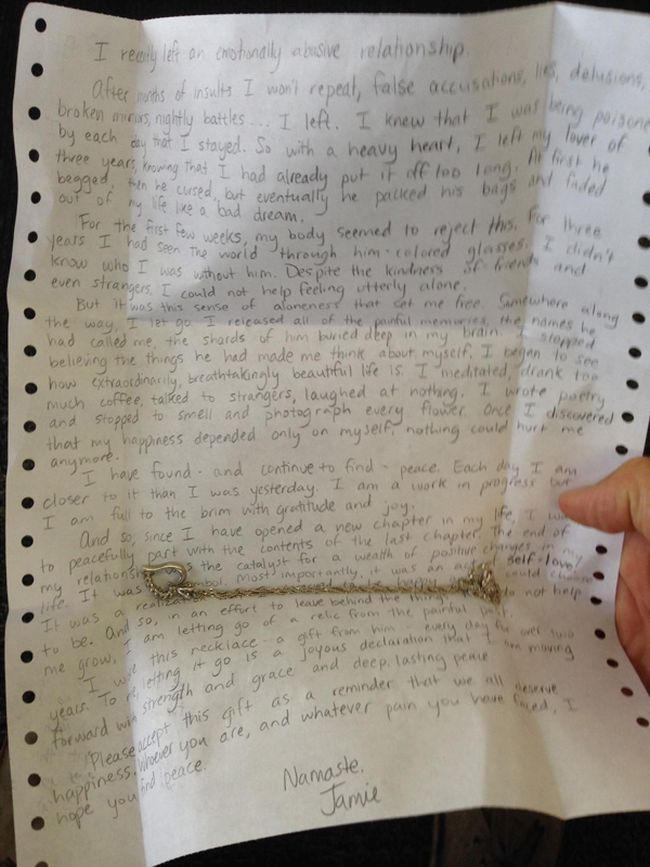 I recently left an emotionally abusive relationship.
After months of insults I won't repeat, false accusations, lies, delusions,
broken mirrors, nightly battles... I left. I knew that I was being poisone
by each day that I stayed. So with a heavy heart, I left my lover of
three years, knowing that I had already put it off too long. At first he
begged, then he cursed, but eventually he packed his bags and faded
out of my life like a bad dream.
For the first few weeks, my body seemed to reject this. For three
years I had seen the world through him-colored glasses. I didn't
know who I was without him. Despite the kindness of friends and
even strangers, I could not help feeling utterly alone.
But it was this sense of aloneness that set me free. Somewhere along
the way, I let go. I released all of the painful memories, the names he
had called me, the shards of him buried deep in my brain. I stopped
believing the things he had made me think about myself. I began to see
how extraordinarily, breathtakingly beautiful life is. I meditated, drank too
much coffee, talked to strangers, laughed at nothing. I wrote poetry
and stopped to smell and photograph every flower. Once I discovered
that my happiness depended only on myself, nothing could hurt me
anymore.
I have found - and continue to find - peace. Each day I am
closer to it than I was yesterday. I am a work in progress but
I am full to the brim with gratitude and joy.
And so, since I have opened a new chapter in my life, I
to peacefully part with the contents of the last chapter. The end of
my the catalyst for a wealth of positive changes in my
life. It was Most importantly, it was an self-love!
It was a to be happy could choose
to be. And so, in an effort to leave behind the things not help
me grow, I am letting go of a relic from the painful past.
I this necklace - a gift from him - every day for over two
years. To letting it go is a joyous declaration that I am moving
forward with strength and grace and deep, lasting peace
Please accept this gift as a reminder that we all deserve
happiness. Whoever you are, and whatever pain you have faced, I
hope you find peace.
Namaste.
Jamie